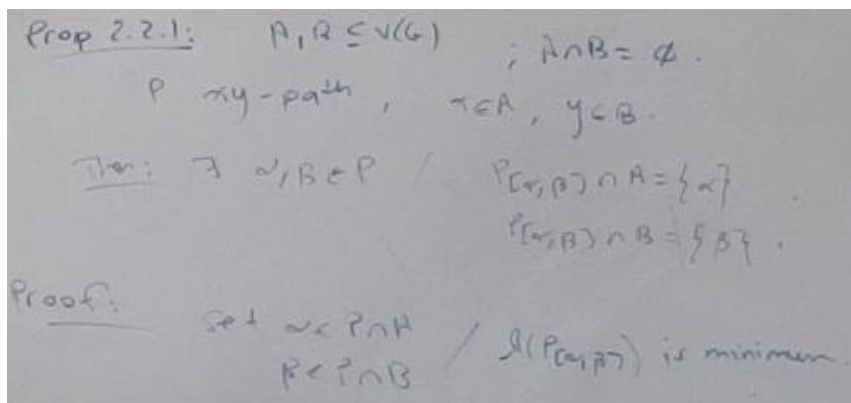 Prop 2.2.1: A, B ⊆ V(G) ; A∩B = ∅.
P xy-path, x∈A, y∈B.
Then: ∃ α, β ∈ P / P[α,β] ∩ A = {α}
P[α,β] ∩ B = {β}.
Proof:
Set α ∈ P∩A
β ∈ P∩B / l(P[α,β]) is minimum.